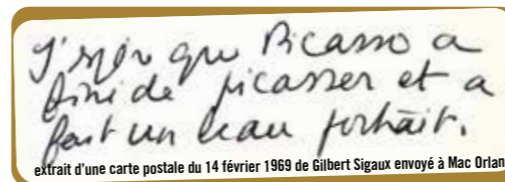 J'espère que Picasso a
fini de picasser et a
fait un beau portrait.
extrait d'une carte postale du 14 février 1969 de Gilbert Sigaux envoyé à Mac Orlan